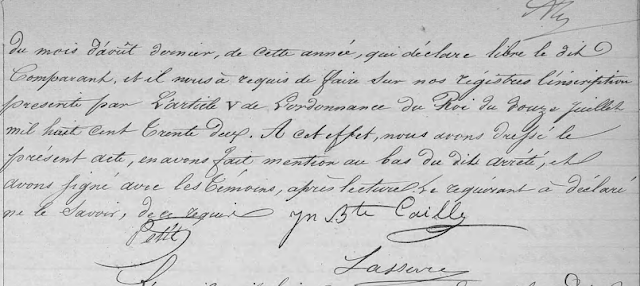 du mois d'août dernier, de cette année, qui déclare libre le dit
Comparant, et il nous à requis de faire sur nos régistres l'inscription
présenté par L'article V de L'ordonnance du Roi du douze Juillet
mil huit cent Trente deux. A cet effet, nous avons dressé le
présent acte, en avons fait mention au bas du dit arrêté, et
avons signé avec les témoins, après lecture. Le requérant à déclaré
ne le savoir, de ce requis Jn Bte Cailly
Petit
Lasserre